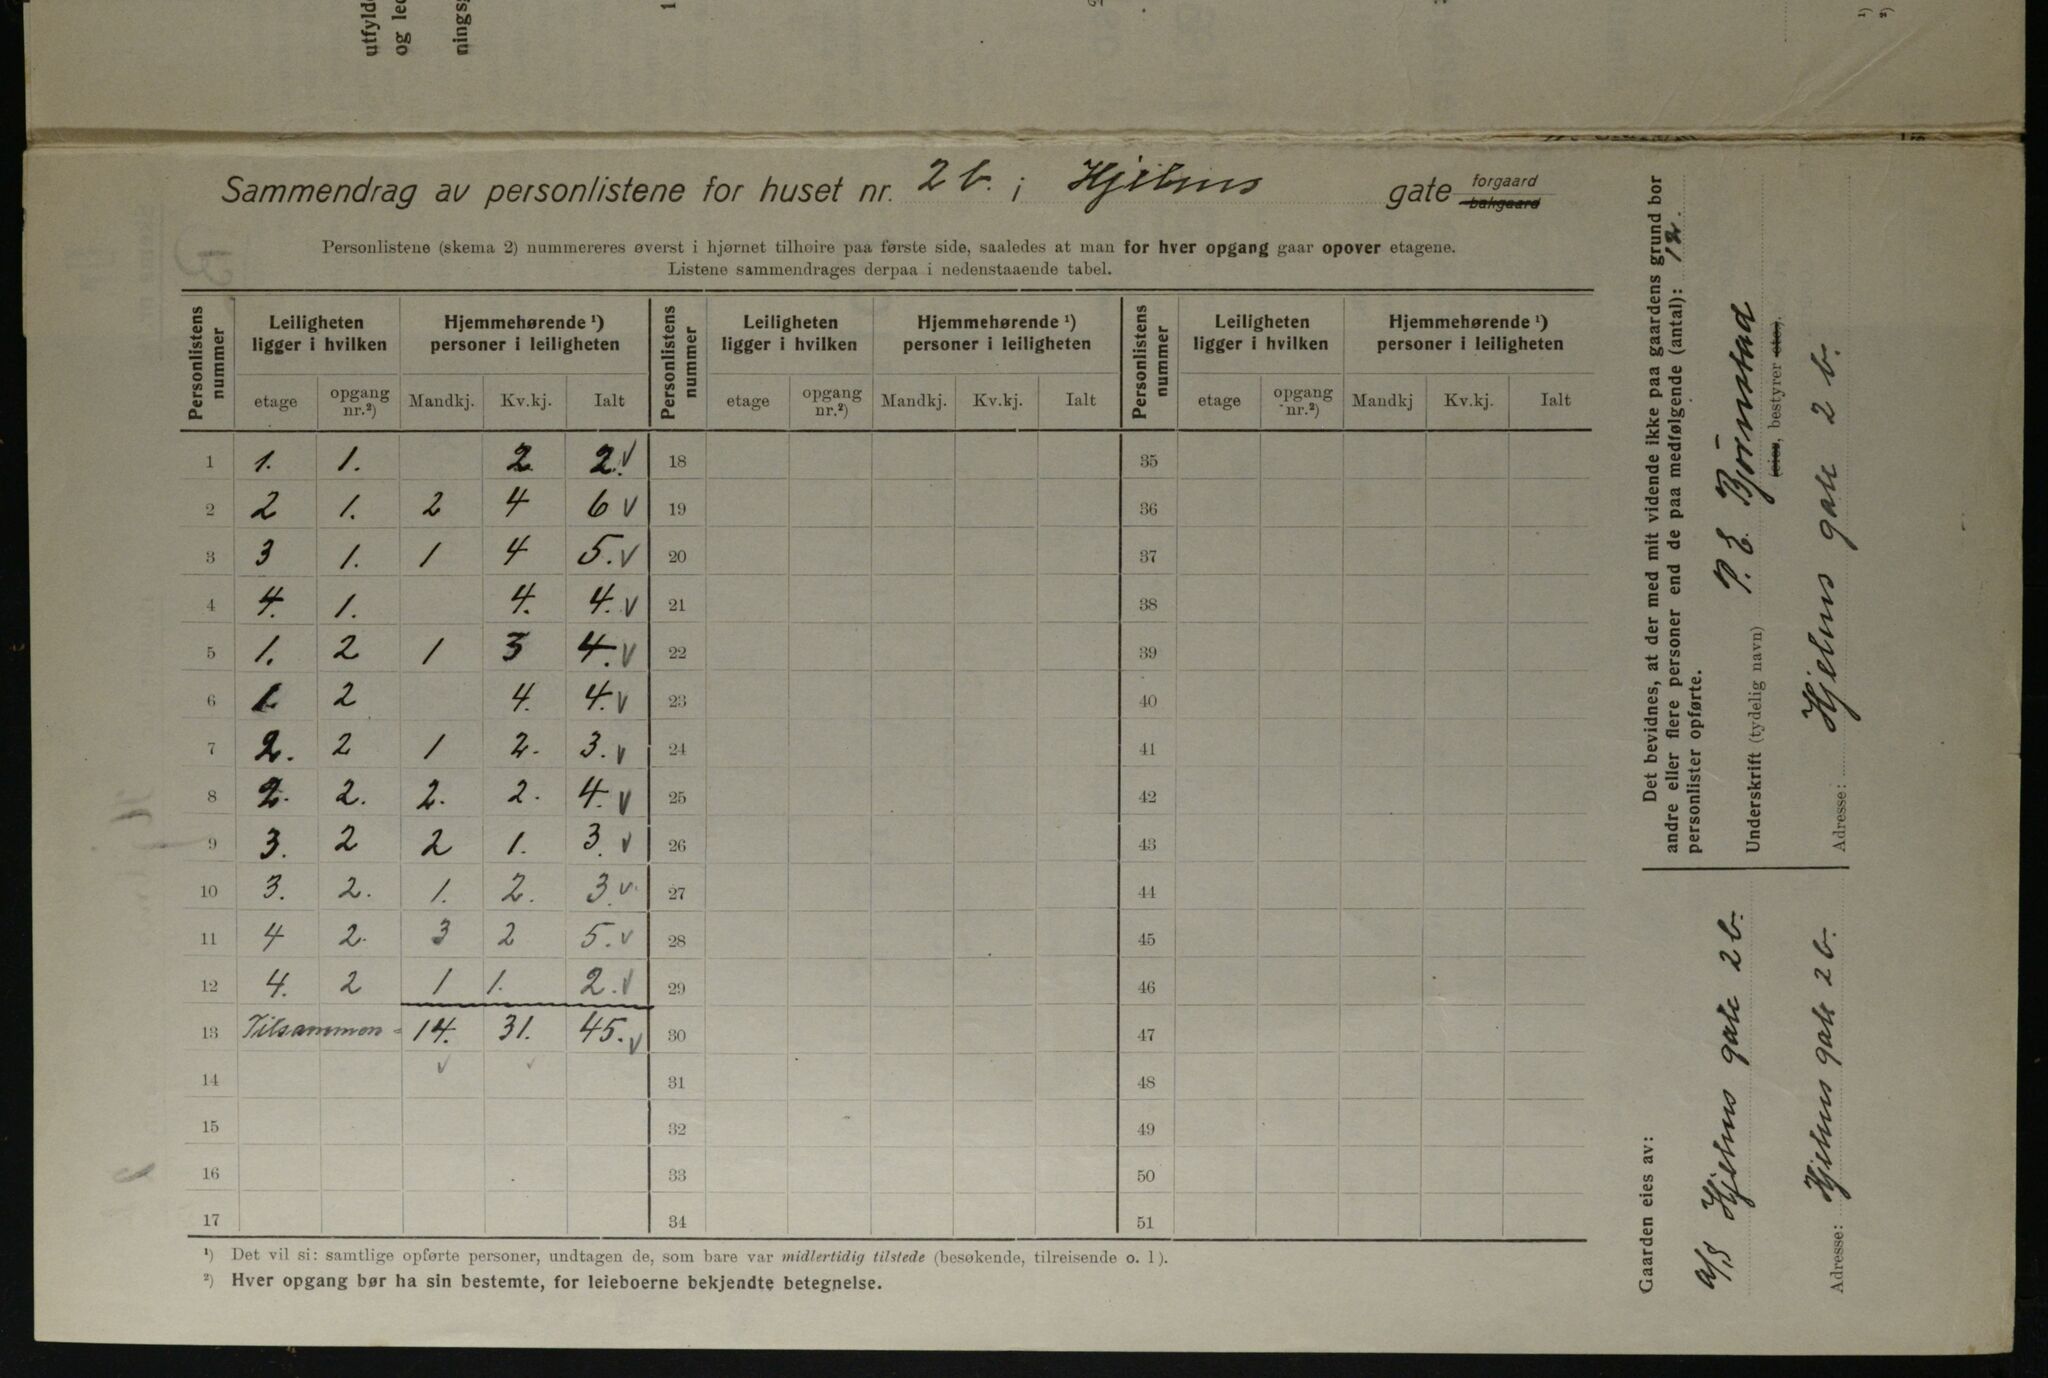 utfylde
og led
nings
Sammendrag av personlistene for huset nr. 2 b. i Hjelms gate forgaard bakgaard
Personlistene (skema 2) nummereres øverst i hjørnet tilhøire paa første side, saaledes at man for hver opgang gaar opover etagene.
Listene sammendrages derpaa i nedenstaaende tabel.
Personlistens nummer | Leiligheten ligger i hvilken | Hjemmehørende ¹) personer i leiligheten | Personlistens nummer | Leiligheten ligger i hvilken | Hjemmehørende ¹) personer i leiligheten | Personlistens nummer | Leiligheten ligger i hvilken | Hjemmehørende ¹) personer i leiligheten
etage | opgang nr.²) | Mandkj. | Kv.kj. | Ialt | etage | opgang nr.²) | Mandkj. | Kv.kj. | Ialt | etage | opgang nr.²) | Mandkj | Kv.kj. | Ialt
1 | 1. | 1. | | 2 | 2. √ | 18 | 35
2 | 2 | 1. | 2 | 4 | 6 √ | 19 | 36
3 | 3 | 1. | 1 | 4 | 5. √ | 20 | 37
4 | 4. | 1. | | 4. | 4. √ | 21 | 38
5 | 1. | 2 | 1 | 3 | 4. √ | 22 | 39
6 | 1 | 2 | | 4. | 4. √ | 23 | 40
7 | 2. | 2 | 1 | 2. | 3. √ | 24 | 41
8 | 2. | 2. | 2. | 2. | 4. √ | 25 | 42
9 | 3. | 2 | 2 | 1. | 3. √ | 26 | 43
10 | 3. | 2. | 1. | 2. | 3 √. | 27 | 44
11 | 4 | 2. | 3 | 2 | 5. √ | 28 | 45
12 | 4. | 2 | 1 | 1. | 2. √ | 29 | 46
13 | Tilsammen = | 14. | 31. | 45. √ | 30 | 47
14 | √ | √ | 31 | 48
15 | 32 | 49
16 | 33 | 50
17 | 34 | 51
¹) Det vil si: samtlige opførte personer, undtagen de, som bare var midlertidig tilstede (besøkende, tilreisende o. l).
²) Hver opgang bør ha sin bestemte, for leieboerne bekjendte betegnelse.
Det bevidnes, at der med mit vidende ikke paa gaardens grund bor
andre eller flere personer end de paa medfølgende (antal): 12.
personlister opførte.
Underskrift (tydelig navn) P. E. Bjørnstad
(eier, bestyrer etc).
Adresse: Hjelms gate 2 b.
Gaarden eies av:
A/S Hjelms gate 2 b.
Adresse: Hjelms gate 2 b.